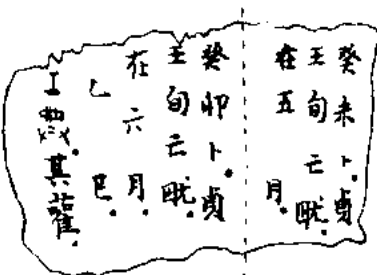 癸未卜.貞
王旬亡畎.
在五月.
癸卯卜.貞
王旬亡畎.
在六月.
乙巳.
工典.其